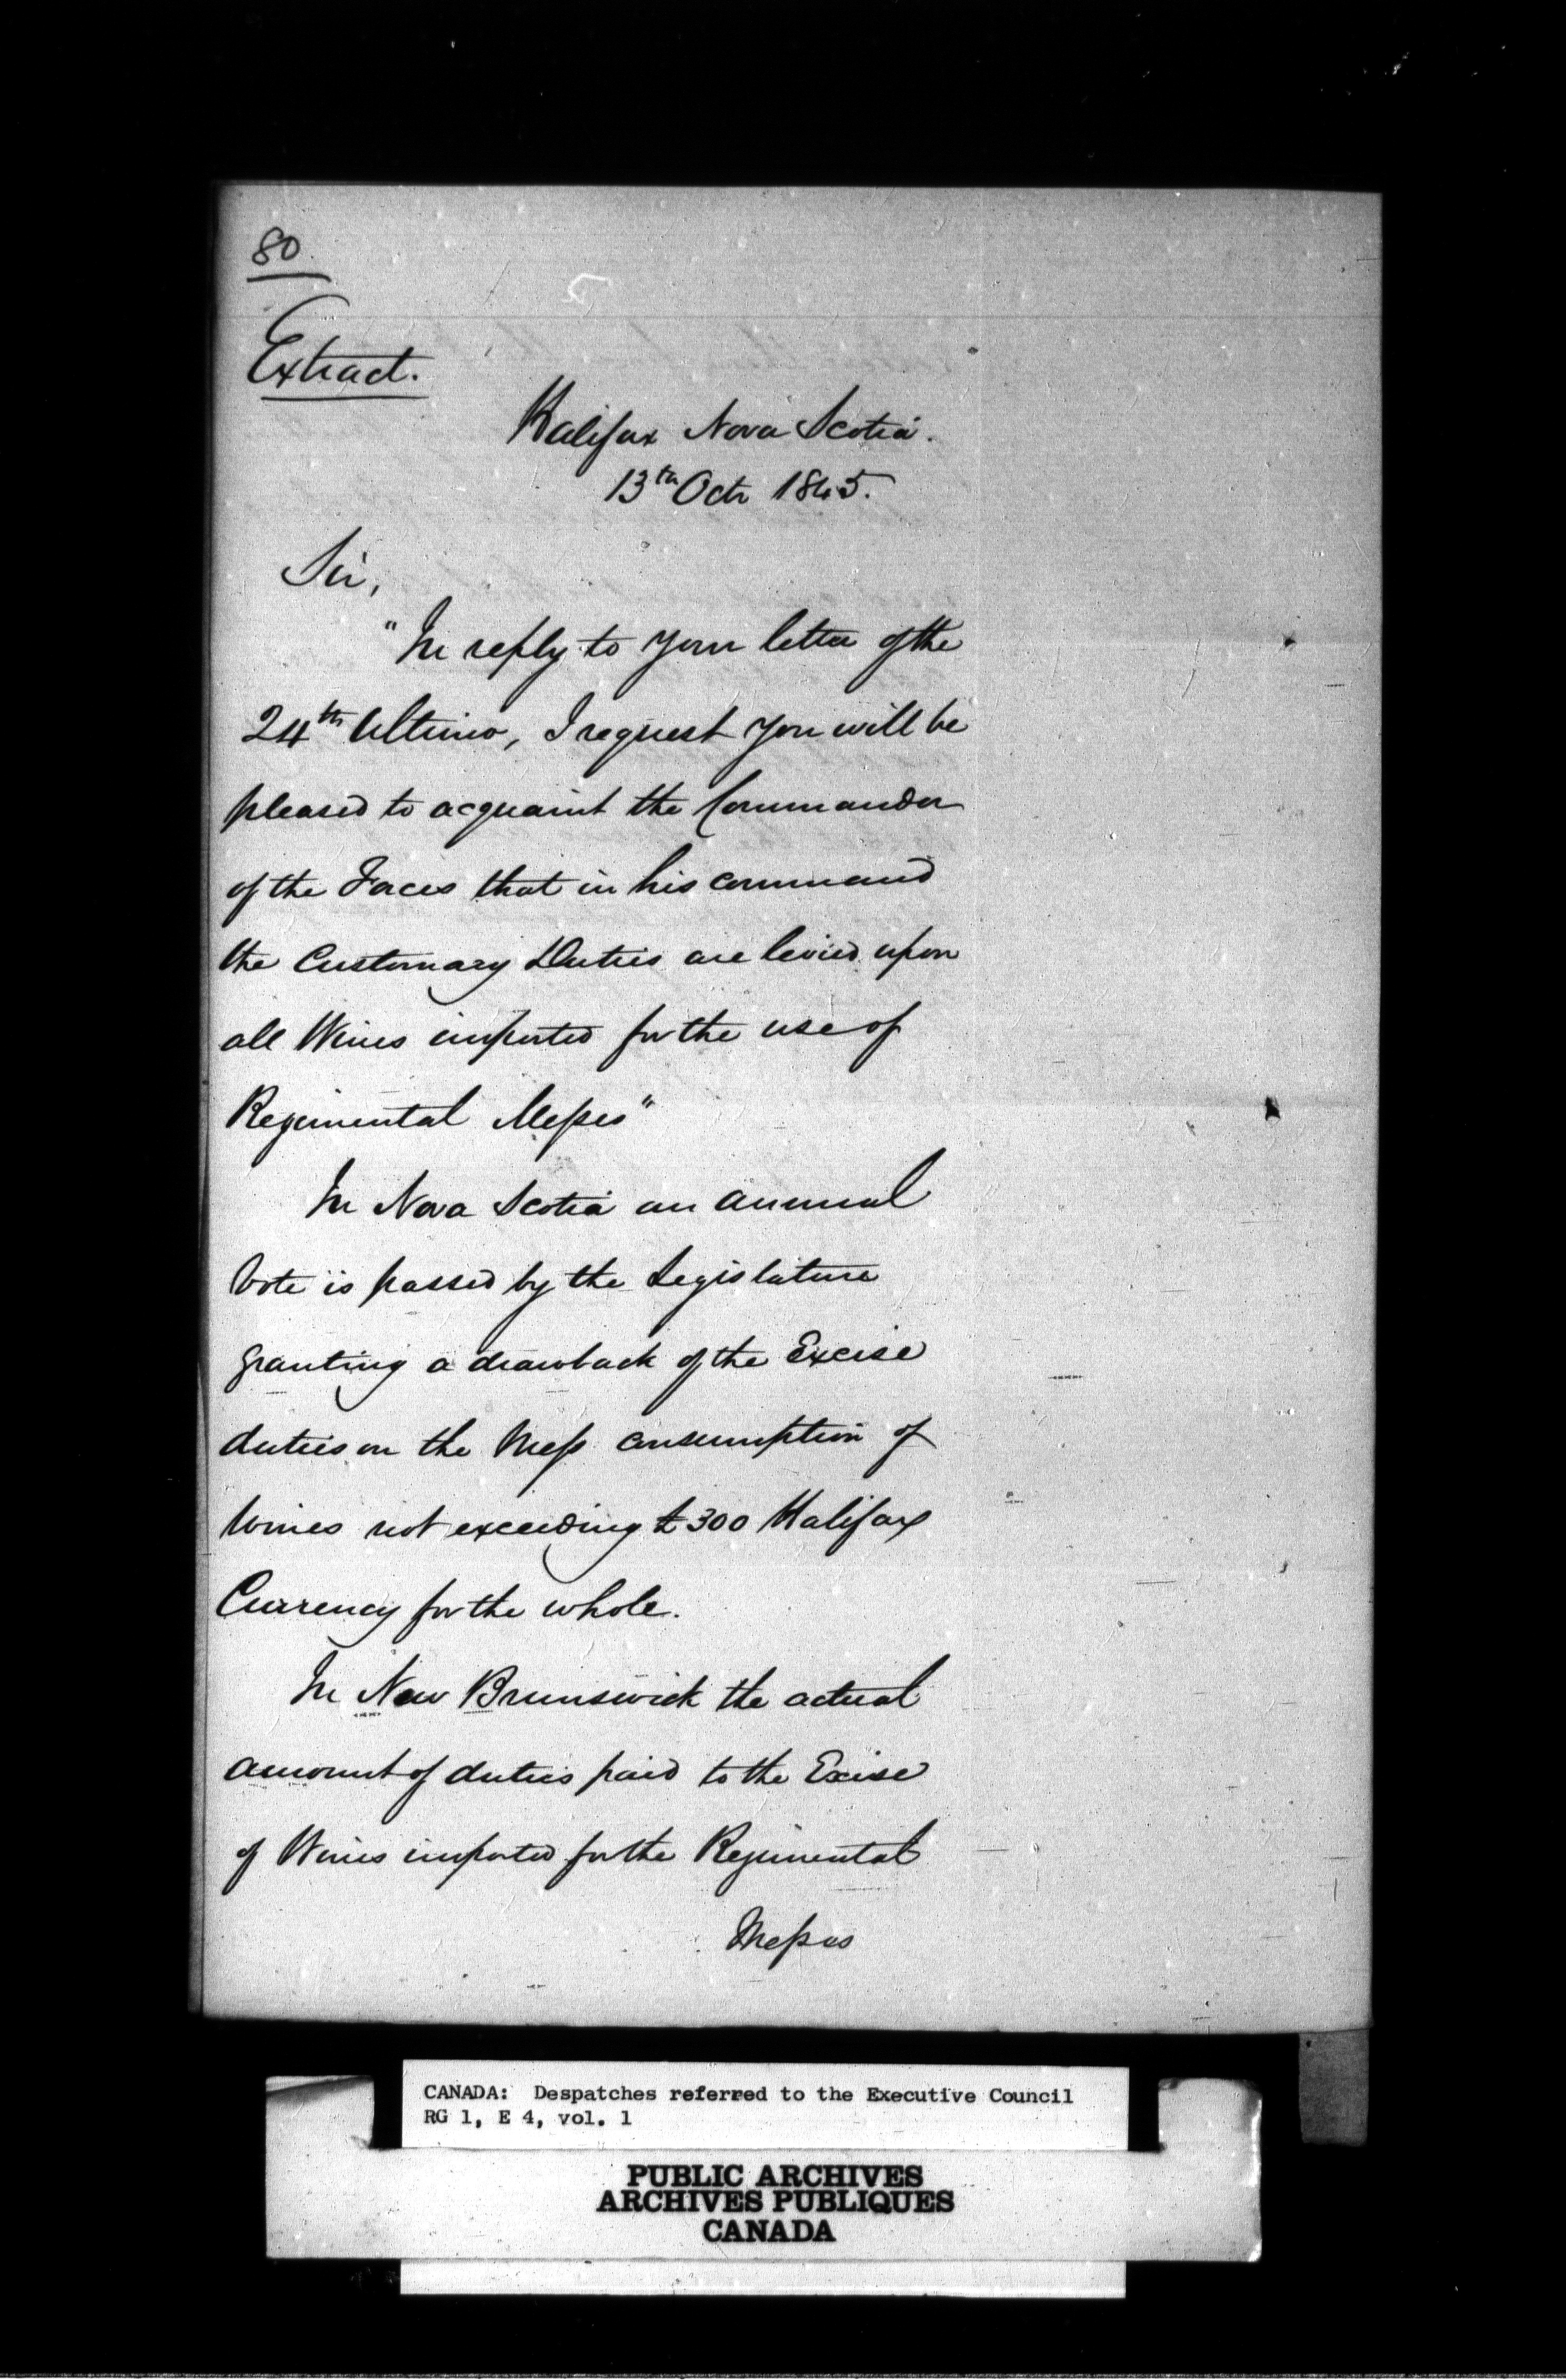 80
Extract.
Halifax Nova Scotia.
13th Octr 1845.
Sir,
"In reply to your letter of the
24th Ultimo, I request you will be
pleased to acquaint the Commander
of the Forces that in his command
the Customary Duties are levied upon
all Wines imported for the use of
Regimental Messes"
In Nova Scotia an annual
Vote is passed by the Legislature
granting a drawback of the Excise
duties on the Mess consumption of
Wines not exceeding £300 Halifax
Currency for the whole.
In New Brunswick the actual
amount of duties paid to the Excise
of Wines imported for the Regimental
Messes
CANADA: Despatches referred to the Executive Council
RG 1, E 4, vol. 1
PUBLIC ARCHIVES
ARCHIVES PUBLIQUES
CANADA